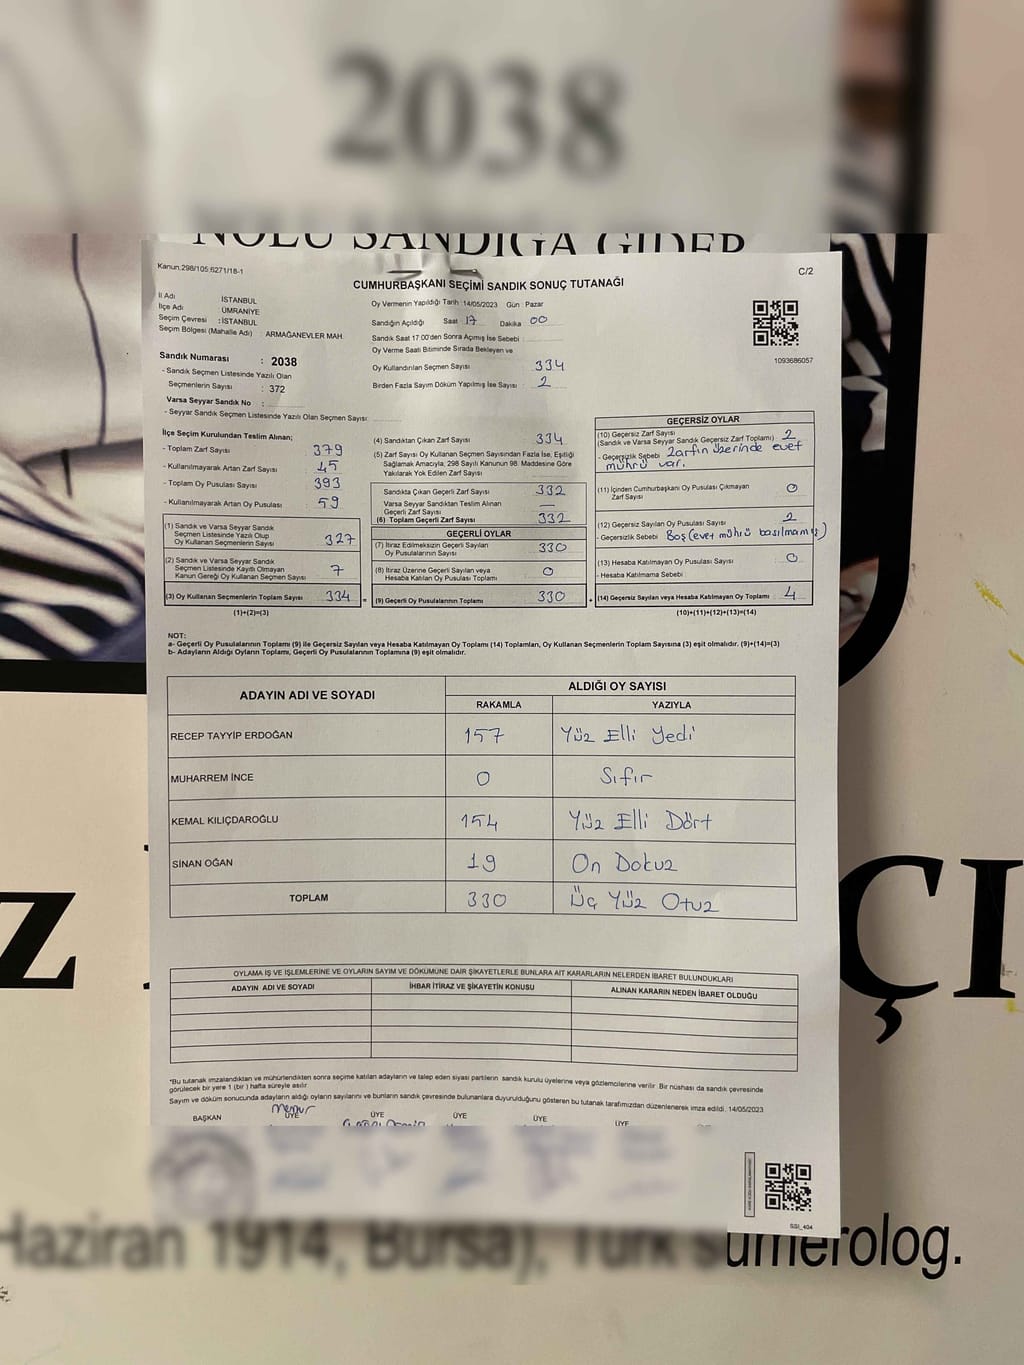 2038
NOLU SANDIĞA GİDER
Kanun:298/105,6271/18-1
C/2
CUMHURBAŞKANI SEÇİMİ SANDIK SONUÇ TUTANAĞI
İl Adı İSTANBUL
İlçe Adı : ÜMRANİYE
Seçim Çevresi : İSTANBUL
Seçim Bölgesi (Mahalle Adı) : ARMAĞANEVLER MAH.
Sandık Numarası : 2038
- Sandık Seçmen Listesinde Yazılı Olan
Seçmenlerin Sayısı : 372
Varsa Seyyar Sandık No :
- Seyyar Sandık Seçmen Listesinde Yazılı Olan Seçmen Sayısı:
Oy Vermenin Yapıldığı Tarih :14/05/2023 Gün : Pazar
Sandığın Açıldığı Saat 17 Dakika 00
Sandık Saat 17:00'den Sonra Açılmış İse Sebebi :
Oy Verme Saati Bitiminde Sırada Bekleyen ve
Oy Kullandırılan Seçmen Sayısı : 334
Birden Fazla Sayım Döküm Yapılmış İse Sayısı : 2
1093686057
İlçe Seçim Kurulundan Teslim Alınan;
- Toplam Zarf Sayısı 379
- Kullanılmayarak Artan Zarf Sayısı 45
- Toplam Oy Pusulası Sayısı 393
- Kullanılmayarak Artan Oy Pusulası 59
(1) Sandık ve Varsa Seyyar Sandık
Seçmen Listesinde Yazılı Olup
Oy Kullanan Seçmenlerin Sayısı 327
(2) Sandık ve Varsa Seyyar Sandık
Seçmen Listesinde Kayıtlı Olmayan
Kanun Gereği Oy Kullanan Seçmen Sayısı 7
(3) Oy Kullanan Seçmenlerin Toplam Sayısı 334 =
(1)+(2)=(3)
(4) Sandıktan Çıkan Zarf Sayısı 334
(5) Zarf Sayısı Oy Kullanan Seçmen Sayısından Fazla İse, Eşitliği
Sağlamak Amacıyla, 298 Sayılı Kanunun 98. Maddesine Göre
Yakılarak Yok Edilen Zarf Sayısı
Sandıkta Çıkan Geçerli Zarf Sayısı 332
Varsa Seyyar Sandıktan Teslim Alınan
Geçerli Zarf Sayısı —
(6) Toplam Geçerli Zarf Sayısı 332
GEÇERLİ OYLAR
(7) İtiraz Edilmeksizin Geçerli Sayılan
Oy Pusulalarının Sayısı 330
(8) İtiraz Üzerine Geçerli Sayılan veya
Hesaba Katılan Oy Pusulası Toplamı 0
(9) Geçerli Oy Pusulalarının Toplamı 330 +
GEÇERSİZ OYLAR
(10) Geçersiz Zarf Sayısı
(Sandık ve Varsa Seyyar Sandık Geçersiz Zarf Toplamı) 2
- Geçersizlik Sebebi Zarfın üzerinde evet
mührü var.
(11) İçinden Cumhurbaşkanı Oy Pusulası Çıkmayan
Zarf Sayısı 0
(12) Geçersiz Sayılan Oy Pusulası Sayısı 2
- Geçersizlik Sebebi Boş (evet mührü basılmamış)
(13) Hesaba Katılmayan Oy Pusulası Sayısı 0
- Hesaba Katılmama Sebebi
(14) Geçersiz Sayılan veya Hesaba Katılmayan Oy Toplamı 4
(10)+(11)+(12)+(13)=(14)
NOT:
a- Geçerli Oy Pusulalarının Toplamı (9) ile Geçersiz Sayılan veya Hesaba Katılmayan Oy Toplamı (14) Toplamları, Oy Kullanan Seçmenlerin Toplam Sayısına (3) eşit olmalıdır. (9)+(14)=(3)
b- Adayların Aldığı Oyların Toplamı, Geçerli Oy Pusulalarının Toplamına (9) eşit olmalıdır.
ADAYIN ADI VE SOYADI ALDIĞI OY SAYISI
RAKAMLA YAZIYLA
RECEP TAYYİP ERDOĞAN 157 Yüz Elli Yedi
MUHARREM İNCE 0 Sıfır
KEMAL KILIÇDAROĞLU 154 Yüz Elli Dört
SİNAN OĞAN 19 On Dokuz
TOPLAM 330 Üç Yüz Otuz
OYLAMA İŞ VE İŞLEMLERİNE VE OYLARIN SAYIM VE DÖKÜMÜNE DAİR ŞİKAYETLERLE BUNLARA AİT KARARLARIN NELERDEN İBARET BULUNDUKLARI
ADAYIN ADI VE SOYADI İHBAR İTİRAZ VE ŞİKAYETİN KONUSU ALINAN KARARIN NEDEN İBARET OLDUĞU
*Bu tutanak imzalandıktan ve mühürlendikten sonra seçime katılan adayların ve talep eden siyasi partilerin sandık kurulu üyelerine veya gözlemcilerine verilir. Bir nüshası da sandık çevresinde
görülecek bir yere 1 (bir ) hafta süreyle asılır.
Sayım ve döküm sonucunda adayların aldığı oyların sayılarını ve bunların sandık çevresinde bulunanlara duyurulduğunu gösteren bu tutanak tarafımızdan düzenlenerek imza edildi. 14/05/2023
BAŞKAN memur ÜYE ÜYE ÜYE ÜYE ÜYE
SSI_404
Z
ÇI
Haziran 1914, Bursa), Türk sümerolog.